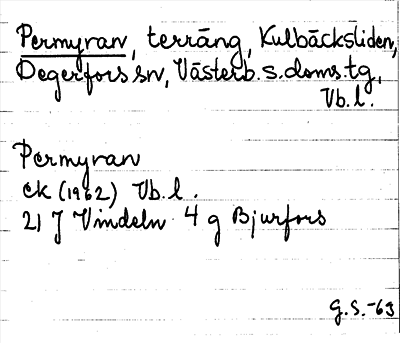 Permyran, terräng, Kulbäcksliden,
Degerfors sn, Västerb. s. doms. tg,
Vb. l.
Permyran
ek (1962) Vb. l.
21 J Vindeln 4 g Bjurfors
G.S. -63